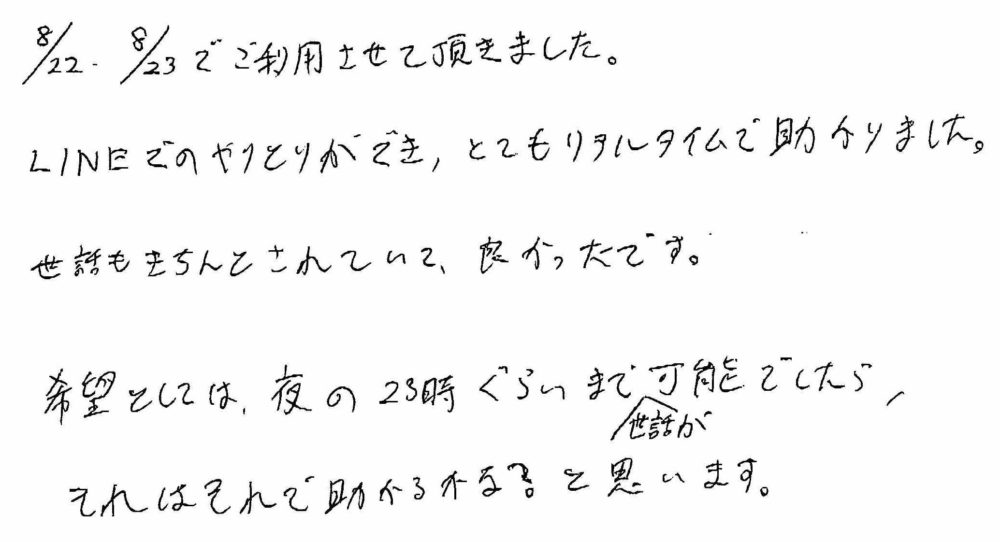 8/22. 8/23でご利用させて頂きました。
LINEでのやりとりができ,とてもリアルタイムで助かりました。
世話もきちんとされていて、良かったです。
希望としては、夜の23時ぐらいまで世話が可能でしたら,
それはそれで助かるかな?と思います。